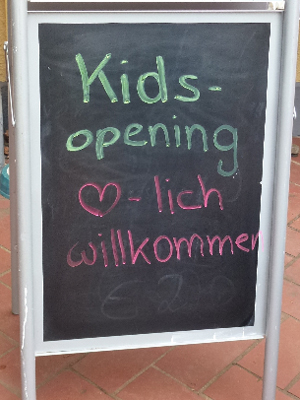 Kids-
opening
♡-lich
willkommen